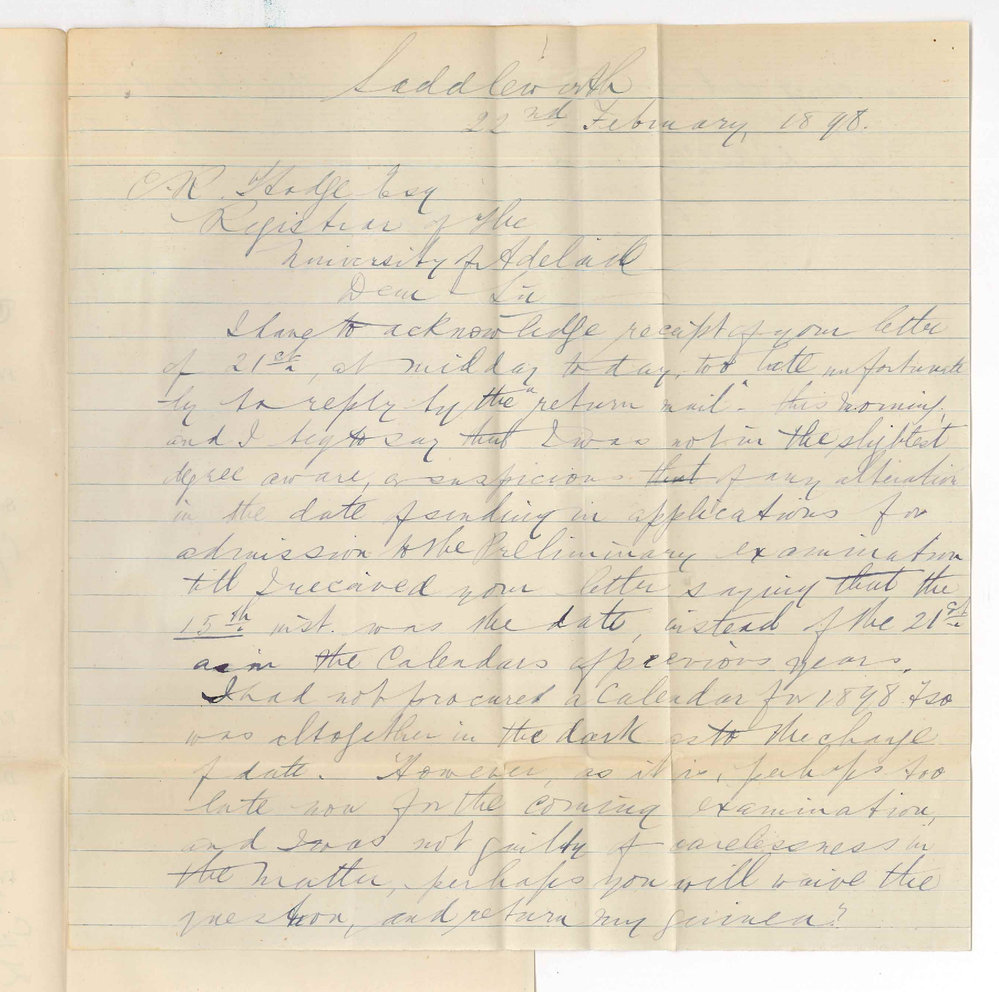 Saddleworth
22nd February, 1898.
C.R. Hodge Esq
Registrar of the
University of Adelaide
Dear Sir
I have to acknowledge receipt of your letter
of 21st, at midday to day, too late unfortunate
-ly to reply by the "return mail" this morning,
and I beg to say that I was not in the slightest
degree aware, or suspicious that of any alteration
in the date of sending in applications for
admission to the Preliminary examination
till I received your letter saying that the
15th inst. was the date, instead of the 21st
as in the Calendars of previous years.
I had not procured a Calendar for 1898 & so
was altogether in the dark as to the change
of date. However, as it is, perhaps too
late now for the coming examination,
and I was not guilty of carelessness in
the matter, perhaps you will waive the
question, and return my guinea?